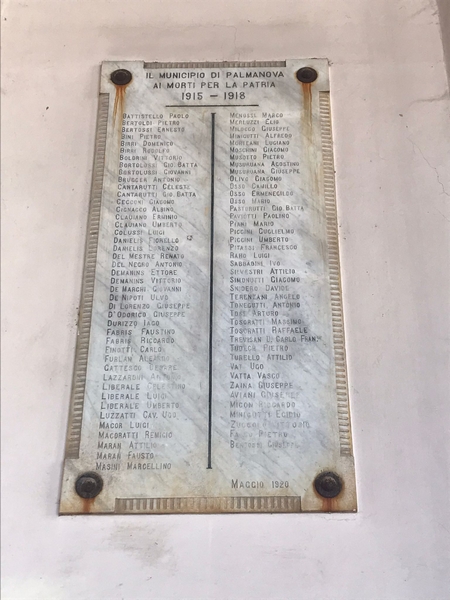 IL MUNICIPIO DI PALMANOVA
AI MORTI PER LA PATRIA
1915 – 1918
BATTISTELLO PAOLO
BERTOLDI PIETRO
BERTOSSI ERNESTO
BINI PIETRO
BIRRI DOMENICO
BIRRI RODOLFO
BOLDRINI VITTORIO
BORTOLUSSI GIO. BATTA
BORTOLUSSI GIOVANNI
BRUGGER ANTONIO
CANTARUTTI CELESTE
CANTARUTTI GIO. BATTA
CECCONI GIACOMO
CIGNACCO ALBINO
CLADIANO ERMINIO
CLADIANO UMBERTO
COLUSSI LUIGI
DANIELIS FIORELLO
DANIELIS LORENZO
DEL MESTRE RENATO
DEL NEGRO ANTONIO
DEMANINS ETTORE
DEMANINS VITTORIO
DE MARCHI GIOVANNI
DE NIPOTI ULVO
DE LORENZO GIUSEPPE
D'ODORICO GIUSEPPE
DURIZZO IAGO
FABRIS FAUSTINO
FABRIS RICCARDO
FINOTTI CARLO
FURLAN
CATTESCO ETTORE
LAZZARONI
LIBERALE CELESTINO
LIBERALE LUIGI
LIBERALE UMBERTO
LUZZATTI CAV. UGO
MACOR LUIGI
MACORATTI REMIGIO
MARAN ATTILIO
MARAN FAUSTO
MASINI MARCELLINO
MENOSSI MARCO
MERLUZZI ELIO
MILOCCO GIUSEPPE
MINIGUTTI ALFREDO
MORTEANI LUCIANO
MOSCHINI GIACOMO
MUREDTO PIETRO
MUSURUANA AGOSTINO
MUSURUANA GIUSEPPE
OLIVO GIACOMO
OSSO CAMILLO
OSSO ERMENEGILDO
OSSO MARIO
PASTORUTTI GIO. BATTA
PAVIOTTI PAOLINO
PIANI MARIO
PICCINI GUGLIELMO
PICCINI UMBERTO
PITASSI FRANCESCO
RAMO LUIGI
SABBADINI IVO
SILVESTRI ATTILIO
SIMONUTTI GIACOMO
SNIDERO DAVIDE
TERENZANI ANGELO
TONEGUTTI ANTONIO
ARTURO
TOSORATTI MASSIMO
TOSORATTI RAFFAELE
TREVISAN D. CARLO FRAN.
PIETRO
TUBELLO ATTILIO
UGO
VATTA VASCO
ZAINA GIUSEPPE
AVIANI GIUSEPPE
MICON RICCARDO
MINIGUTTI EGIDIO
PIETRO
GIUSEPPE
MAGGIO 1920